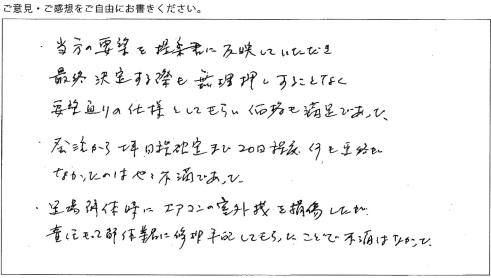 ご意見・ご感想をご自由にお書きください。
・当方の要望を提案書に反映していただき
最終決定する際も無理押しすることなく
要望通りの仕様としてもらい価格も満足であった。
・契約から日程確定まで20日程度何も連絡が
なかったのはやや不満であった。
・足場解体時にエアコンの室外機を損傷したが
責任もって解体業者に修理手配してもらったことで不満はなかった。